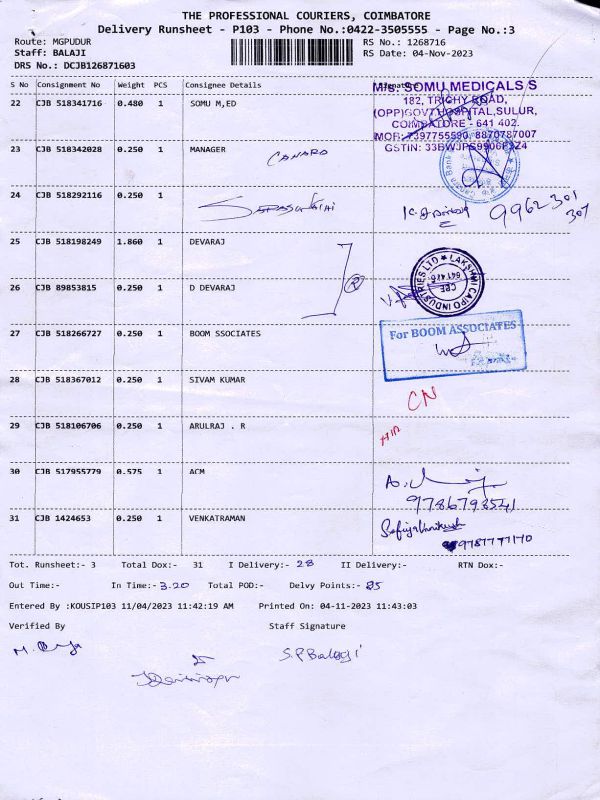 THE PROFESSIONAL COURIERS, COIMBATORE
Delivery Runsheet - P103 - Phone No.:0422-3505555 - Page No.:3
Route: MGPUDUR RS No.: 1268716
Staff: BALAJI RS Date: 04-Nov-2023
DRS No.: DCJB126871603
S No Consignment No Weight PCS Consignee Details Signature
M/s. SOMU MEDICALS S
22 CJB 518341716 0.480 1 SOMU M,ED
182, TRICHY ROAD,
(OPP)GOVT HOSPITAL, SULUR,
COIMBATORE - 641 402.
MOB: 7397755590, 8870787007
23 CJB 518342028 0.250 1 MANAGER CANARA
Canara Bank
24 CJB 518292116 0.250 1
9962 301
307
25 CJB 518198249 1.860 1 DEVARAJ
LAKSHMI CAIPO INDUSTRIES LTD
CBE
26 CJB 89853815 0.250 1 D DEVARAJ
27 CJB 518266727 0.250 1 BOOM SSOCIATES
For BOOM ASSOCIATES
28 CJB 518367012 0.250 1 SIVAM KUMAR
CN
29 CJB 518106706 0.250 1 ARULRAJ . R
30 CJB 517955779 0.575 1 ACM
9786793541
31 CJB 1424653 0.250 1 VENKATRAMAN
Tot. Runsheet:- 3 Total Dox:- 31 I Delivery:- 28 II Delivery:- RTN Dox:-
Out Time:- In Time:- 3.20 Total POD:- Delvy Points:- 25
Entered By :KOUSIP103 11/04/2023 11:42:19 AM Printed On: 04-11-2023 11:43:03
Verified By Staff Signature
S.P Balagi